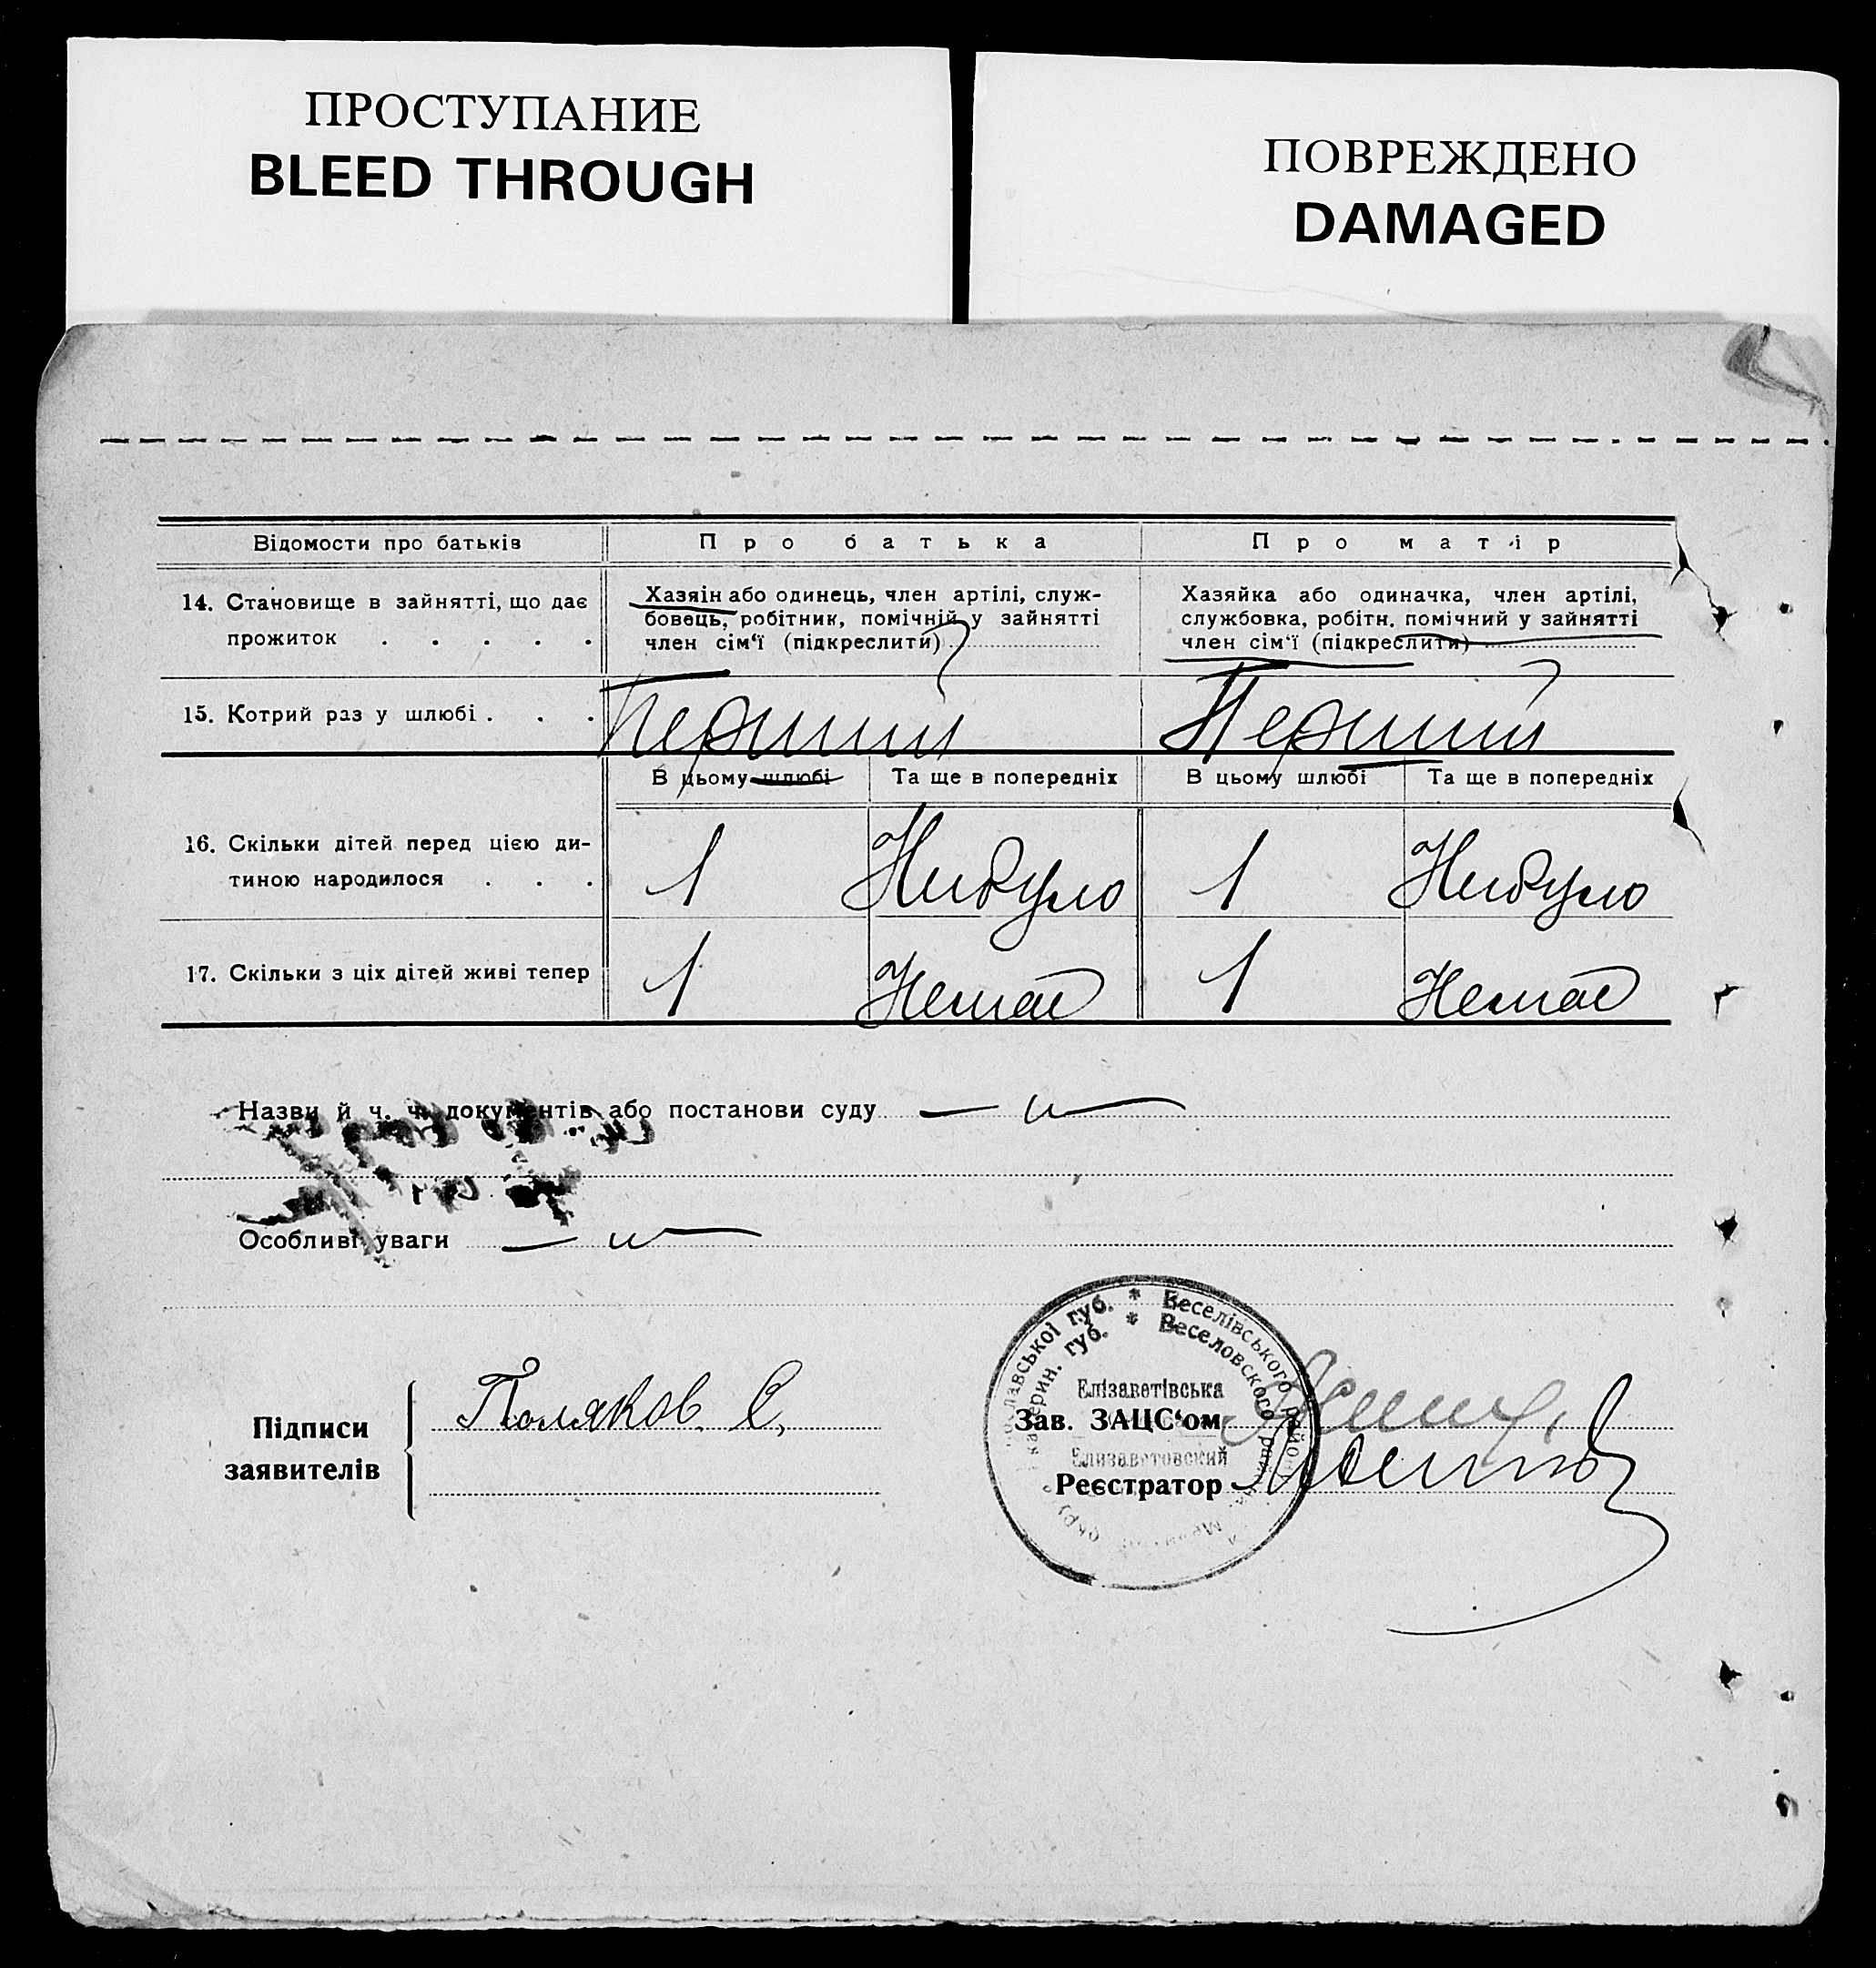 ПРОСТУПАНИЕ
BLEED THROUGH
ПОВРЕЖДЕНО
DAMAGED
Відомости про батьків
Про батька
Про матір
14. Становище в зайнятті, що дає
прожиток . . . . .
Хазяін або одинець, член артілі, служ-
бовець, робітник, помічній у зайнятті
член сім‘ї (підкреслити)
Хазяйка або одиначка, член артілі,
службовка, робітн. помічний у зайнятті
член сім‘ї (підкреслити)
15. Котрий раз у шлюбі . . .
Перший
Перший
В цьому шлюбі
Та ще в попередніх
В цьому шлюбі
Та ще в попередніх
16. Скільки дітей перед цією ди-
тиною народилося . . .
1
Небуло
1
Небуло
17. Скільки з ціх дітей живі тепер
1
Немає
1
Немає
Назви й ч. ч. документів або постанови суду
Особливі уваги
Підписи
заявителів
Поляков. С,
лавської губ. * Веселівського району
катерин. губ. * Веселовского района
Елізаветівська
Зав. ЗАЦС‘ом
Елизаветовский
Реєстратор